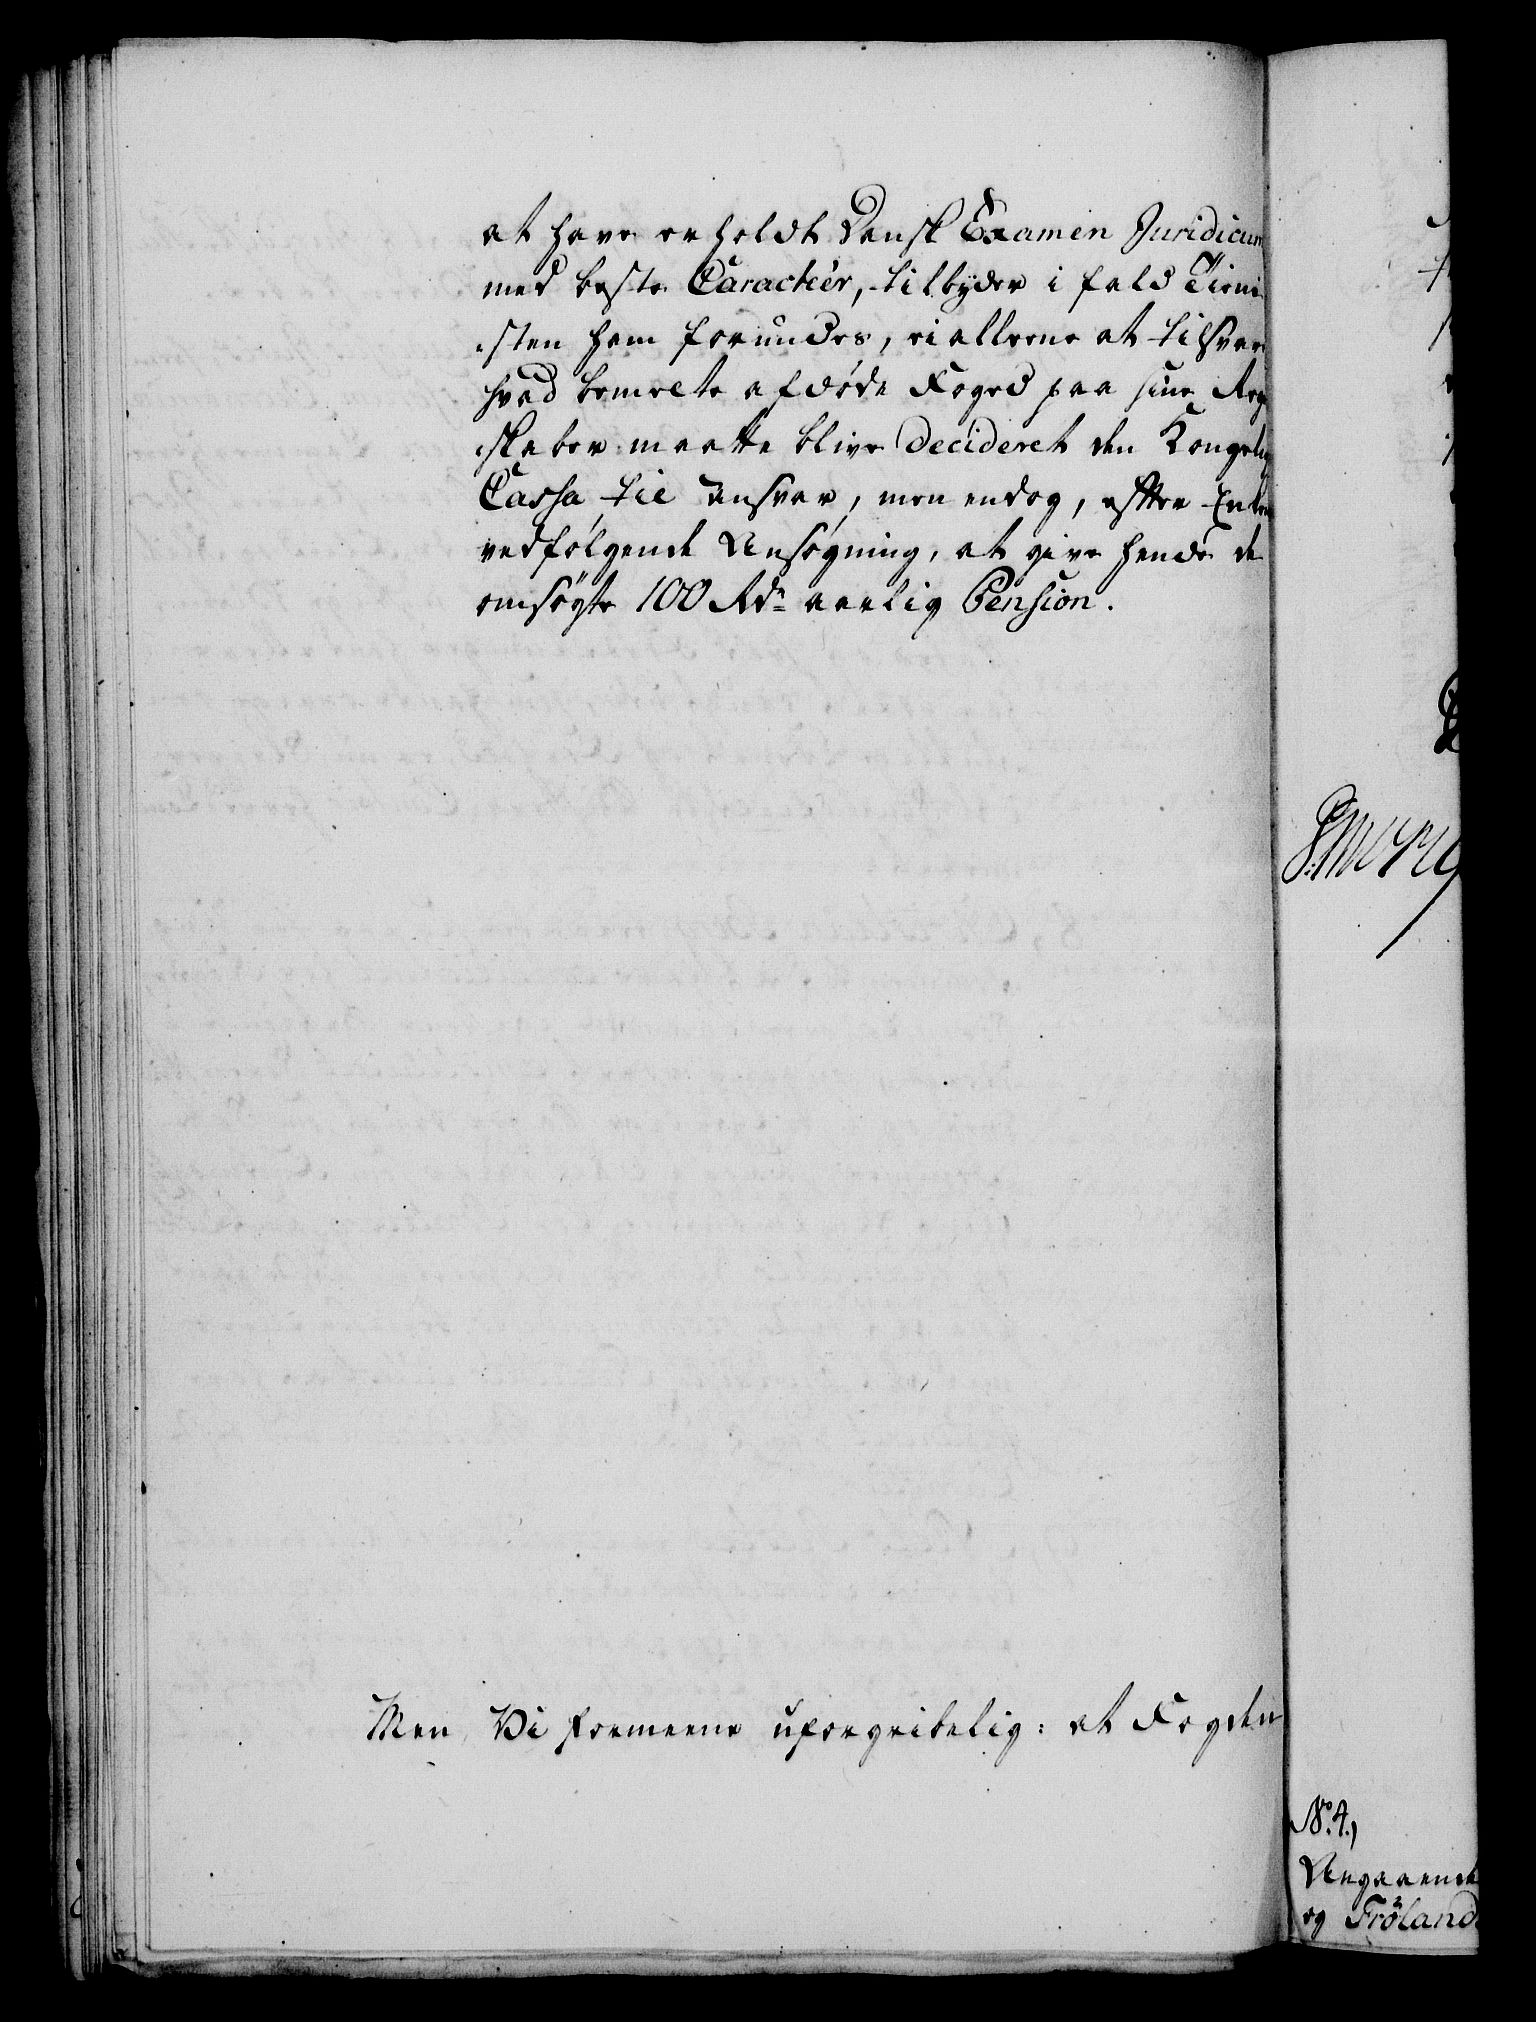 at have erholdt Dansk Examen Juridicum
med beste Caracteér, tilbyder i fald Tieni¬
sten ham forundes, ei alleene at tilsvare
hvad bemelte afdøde Foged paa sine Reg¬
skaber maatte blive decideret den Kongelig
Cassa til Ansvar, men endog, efter Enkens
vedføлgende Ansøgning, at give hende de
omsøgte 100 Rdr aarlig Pension.
Men Vi formeene uforgribelig: at Fogden
No. 4,
Angaaende
og Frölands